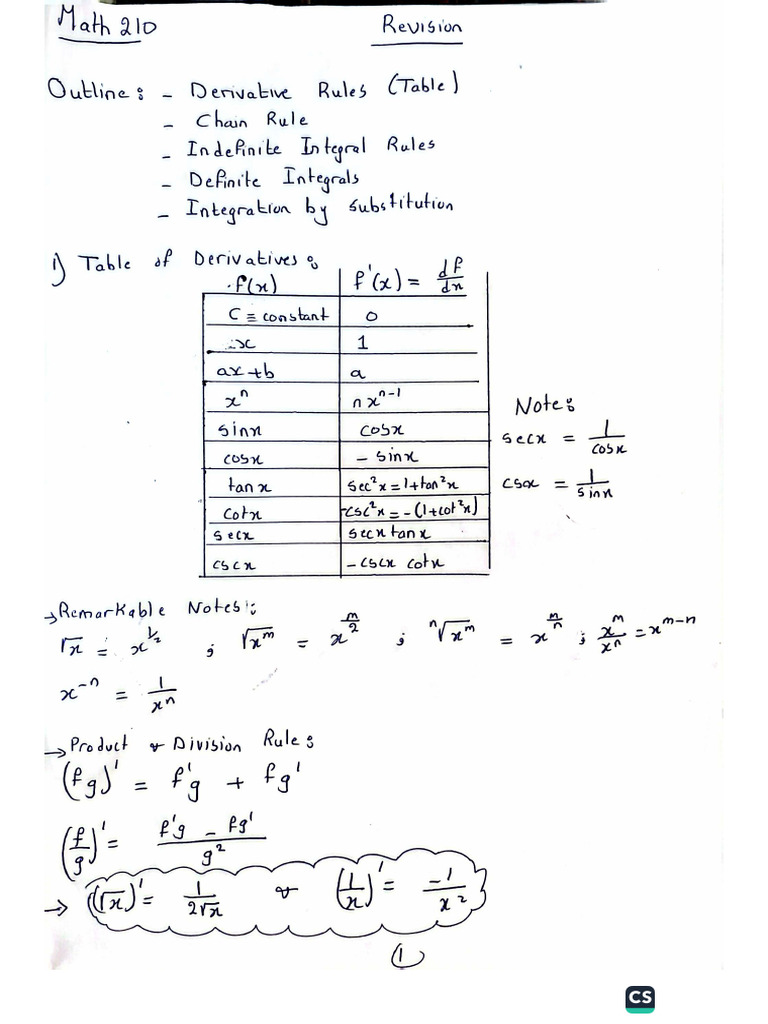 Math 210 Revision
Outline: - Derivative Rules (Table)
- Chain Rule
- Indefinite Integral Rules
- Definite Integrals
- Integration by substitution
1) Table of Derivatives:
f(x) f'(x) = df/dx
C ≡ constant 0
x 1
ax+b a
xⁿ n xⁿ⁻¹
sinx cosx
cosx - sinx
tanx sec²x = 1+tan²x
cotx -csc²x = -(1+cot²x)
secx secx tanx
cscx -cscx cotx
Note:
secx = 1/cosx
cscx = 1/sinx
→ Remarkable Notes:
√x = x^(1/2) ; √(x^m) = x^(m/2) ; ⁿ√(x^m) = x^(m/n) ; x^m/x^n = x^(m-n)
x^(-n) = 1/x^n
→ Product & Division Rule:
(fg)' = f'g + fg'
(f/g)' = (f'g - fg')/g²
→ (√x)' = 1/(2√x) & (1/x)' = -1/x²
1
CS